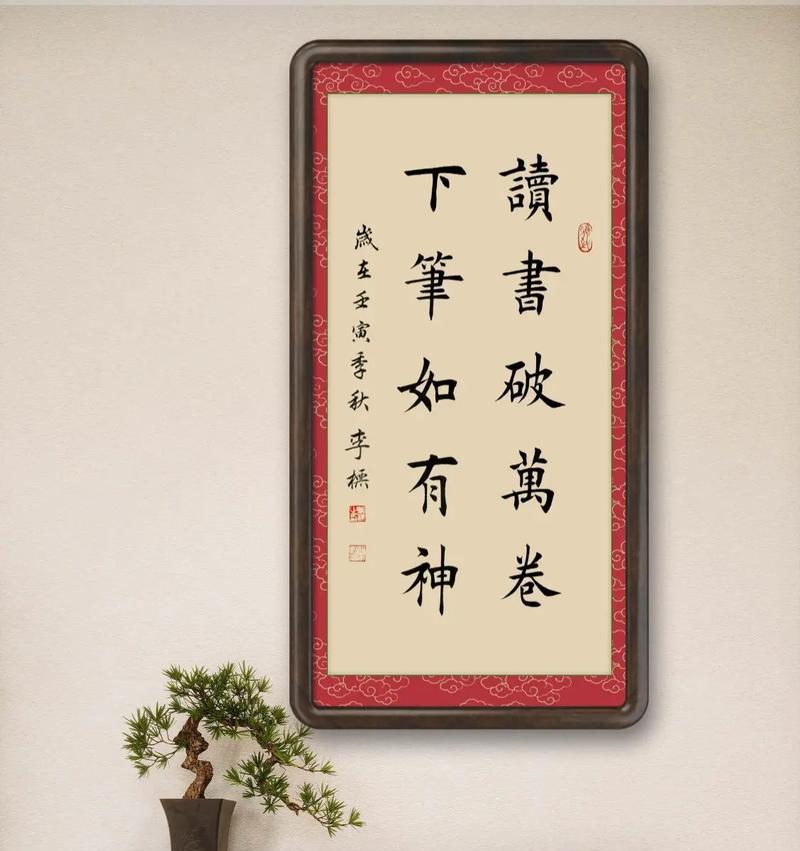 讀書破萬卷
下筆如有神
歲在壬寅季秋李標